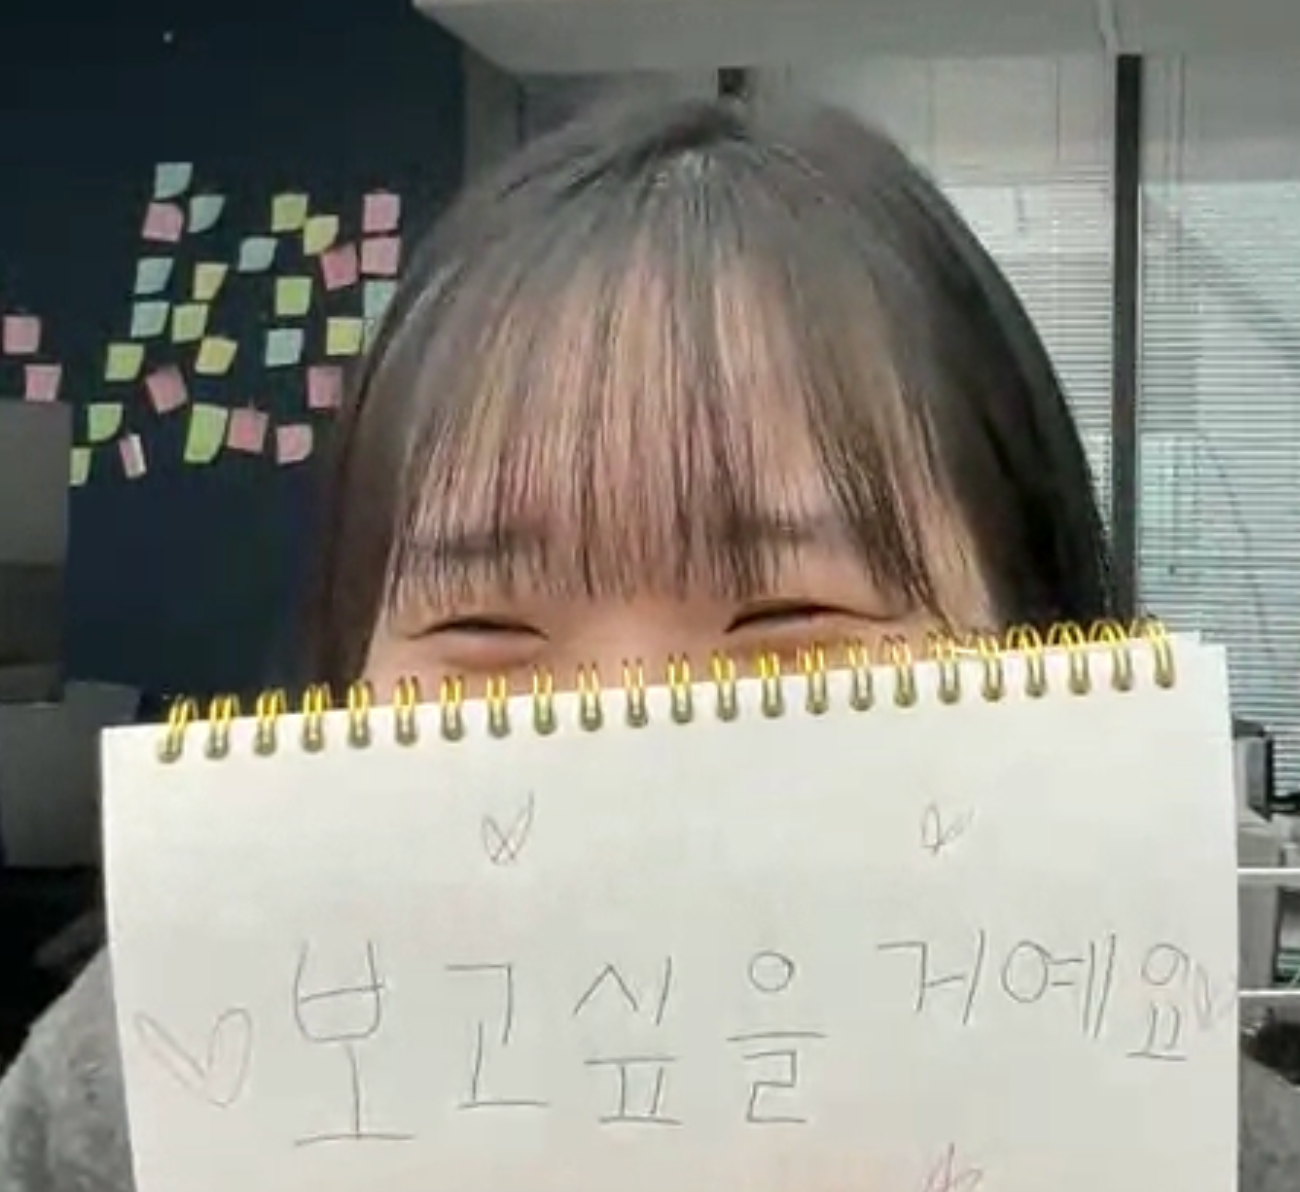 보고싶을 거예요